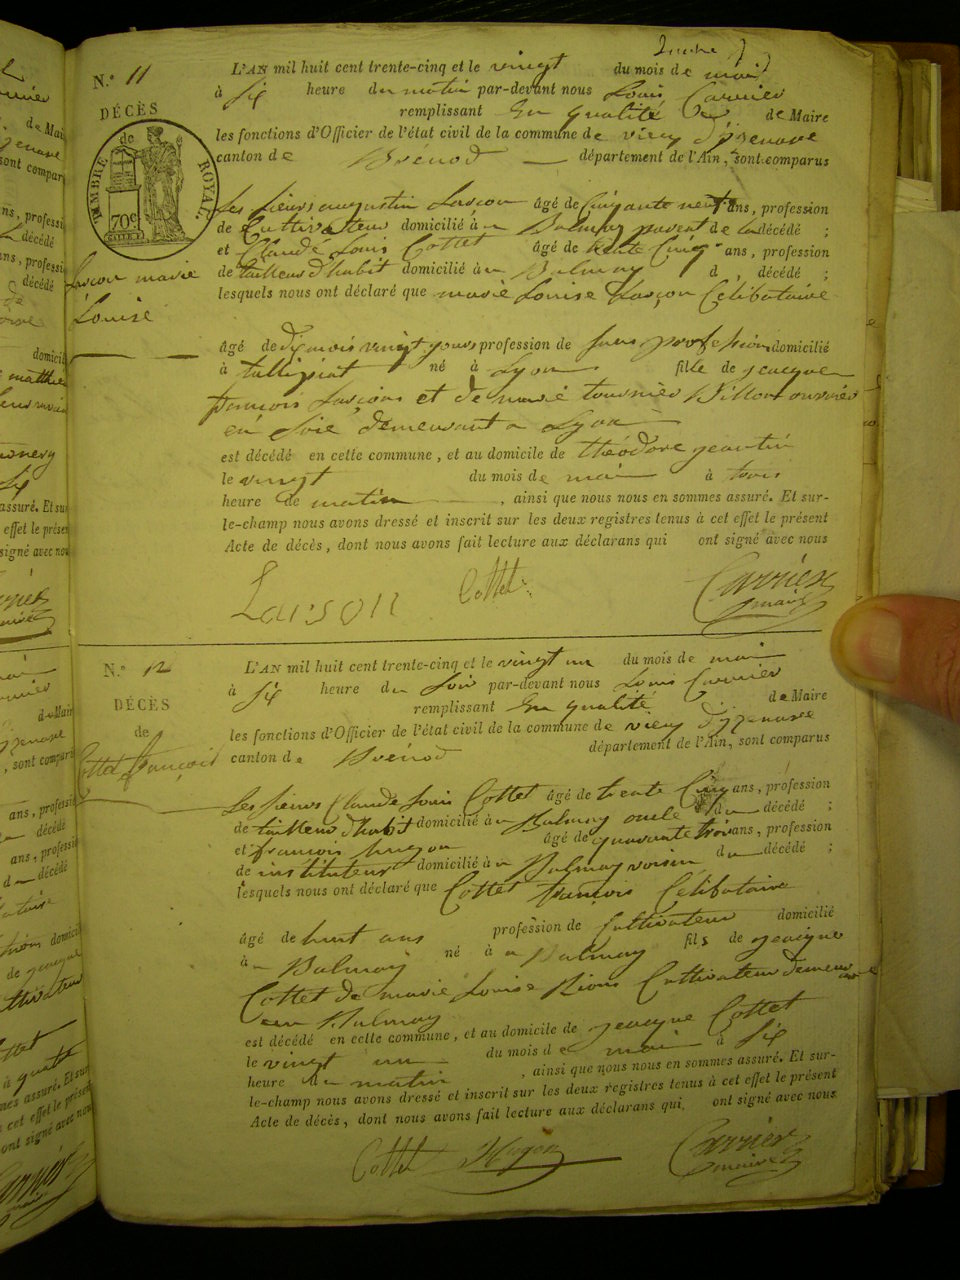 N.o 11
L'AN mil huit cent trente-cinq et le vingt du mois de mai
à six heure du matin par-devant nous Louis Carrier
remplissant en qualité de Maire
DÉCÈS
les fonctions d'Officier de l'état civil de la commune de vieu d'yzenave
de
canton de Brénod département de l'Ain, sont comparus
TIMBRE ROYAL.
70c
Les sieurs augustin Larçon âgé de soixante neuf ans, profession
de Cultivateur domicilié à Balmay parent de la décédé ;
et Claude Louis Cottet âgé de trente Cinq ans, profession
de tailleur d'habit domicilié à Balmay d décédé ;
Larçon marie
Louise
lesquels nous ont déclaré que marie Louise Larçon Célibataire
âgé de dix mois vingt jours profession de sans profession domicilié
à né à Lyon fille de jeacque
françois Larçon et de marie tournier ouvrier
en soie demeurant a Lyon
est décédé en cette commune, et au domicile de théodore
le vingt du mois de mai à trois
heure de matin, ainsi que nous nous en sommes assuré. Et sur-
le-champ nous avons dressé et inscrit sur les deux registres tenus à cet effet le présent
Acte de décès, dont nous avons fait lecture aux déclarans qui ont signé avec nous
Larson Cottet Carrier
maire
N.o 12
L'AN mil huit cent trente-cinq et le vingt un du mois de mai
à six heure du soir par-devant nous Louis Carrier
remplissant en qualité de Maire
DÉCÈS
les fonctions d'Officier de l'état civil de la commune de vieu d'yzenave
de
canton de Brénod département de l'Ain, sont comparus
Cottet françois
Les sieurs Claude Louis Cottet âgé de trente Cinq ans, profession
de tailleur d'habit domicilié à Balmay oncle du décédé ;
et françois hugon âgé de quarante trois ans, profession
de instituteur domicilié à Balmay voisin du décédé ;
lesquels nous ont déclaré que Cottet françois Célibataire
âgé de huit ans profession de Cultivateur domicilié
à Balmay né à Balmay fils de jeacque
Cottet de marie Louise Cultivateur demeurant
au Balmay
est décédé en cette commune, et au domicile de jeacque Cottet
le vingt un du mois de mai à six
heure du matin, ainsi que nous nous en sommes assuré. Et sur-
le-champ nous avons dressé et inscrit sur les deux registres tenus à cet effet le présent
Acte de décès, dont nous avons fait lecture aux déclarans qui ont signé avec nous
Cottet Hugon Carrier
maire